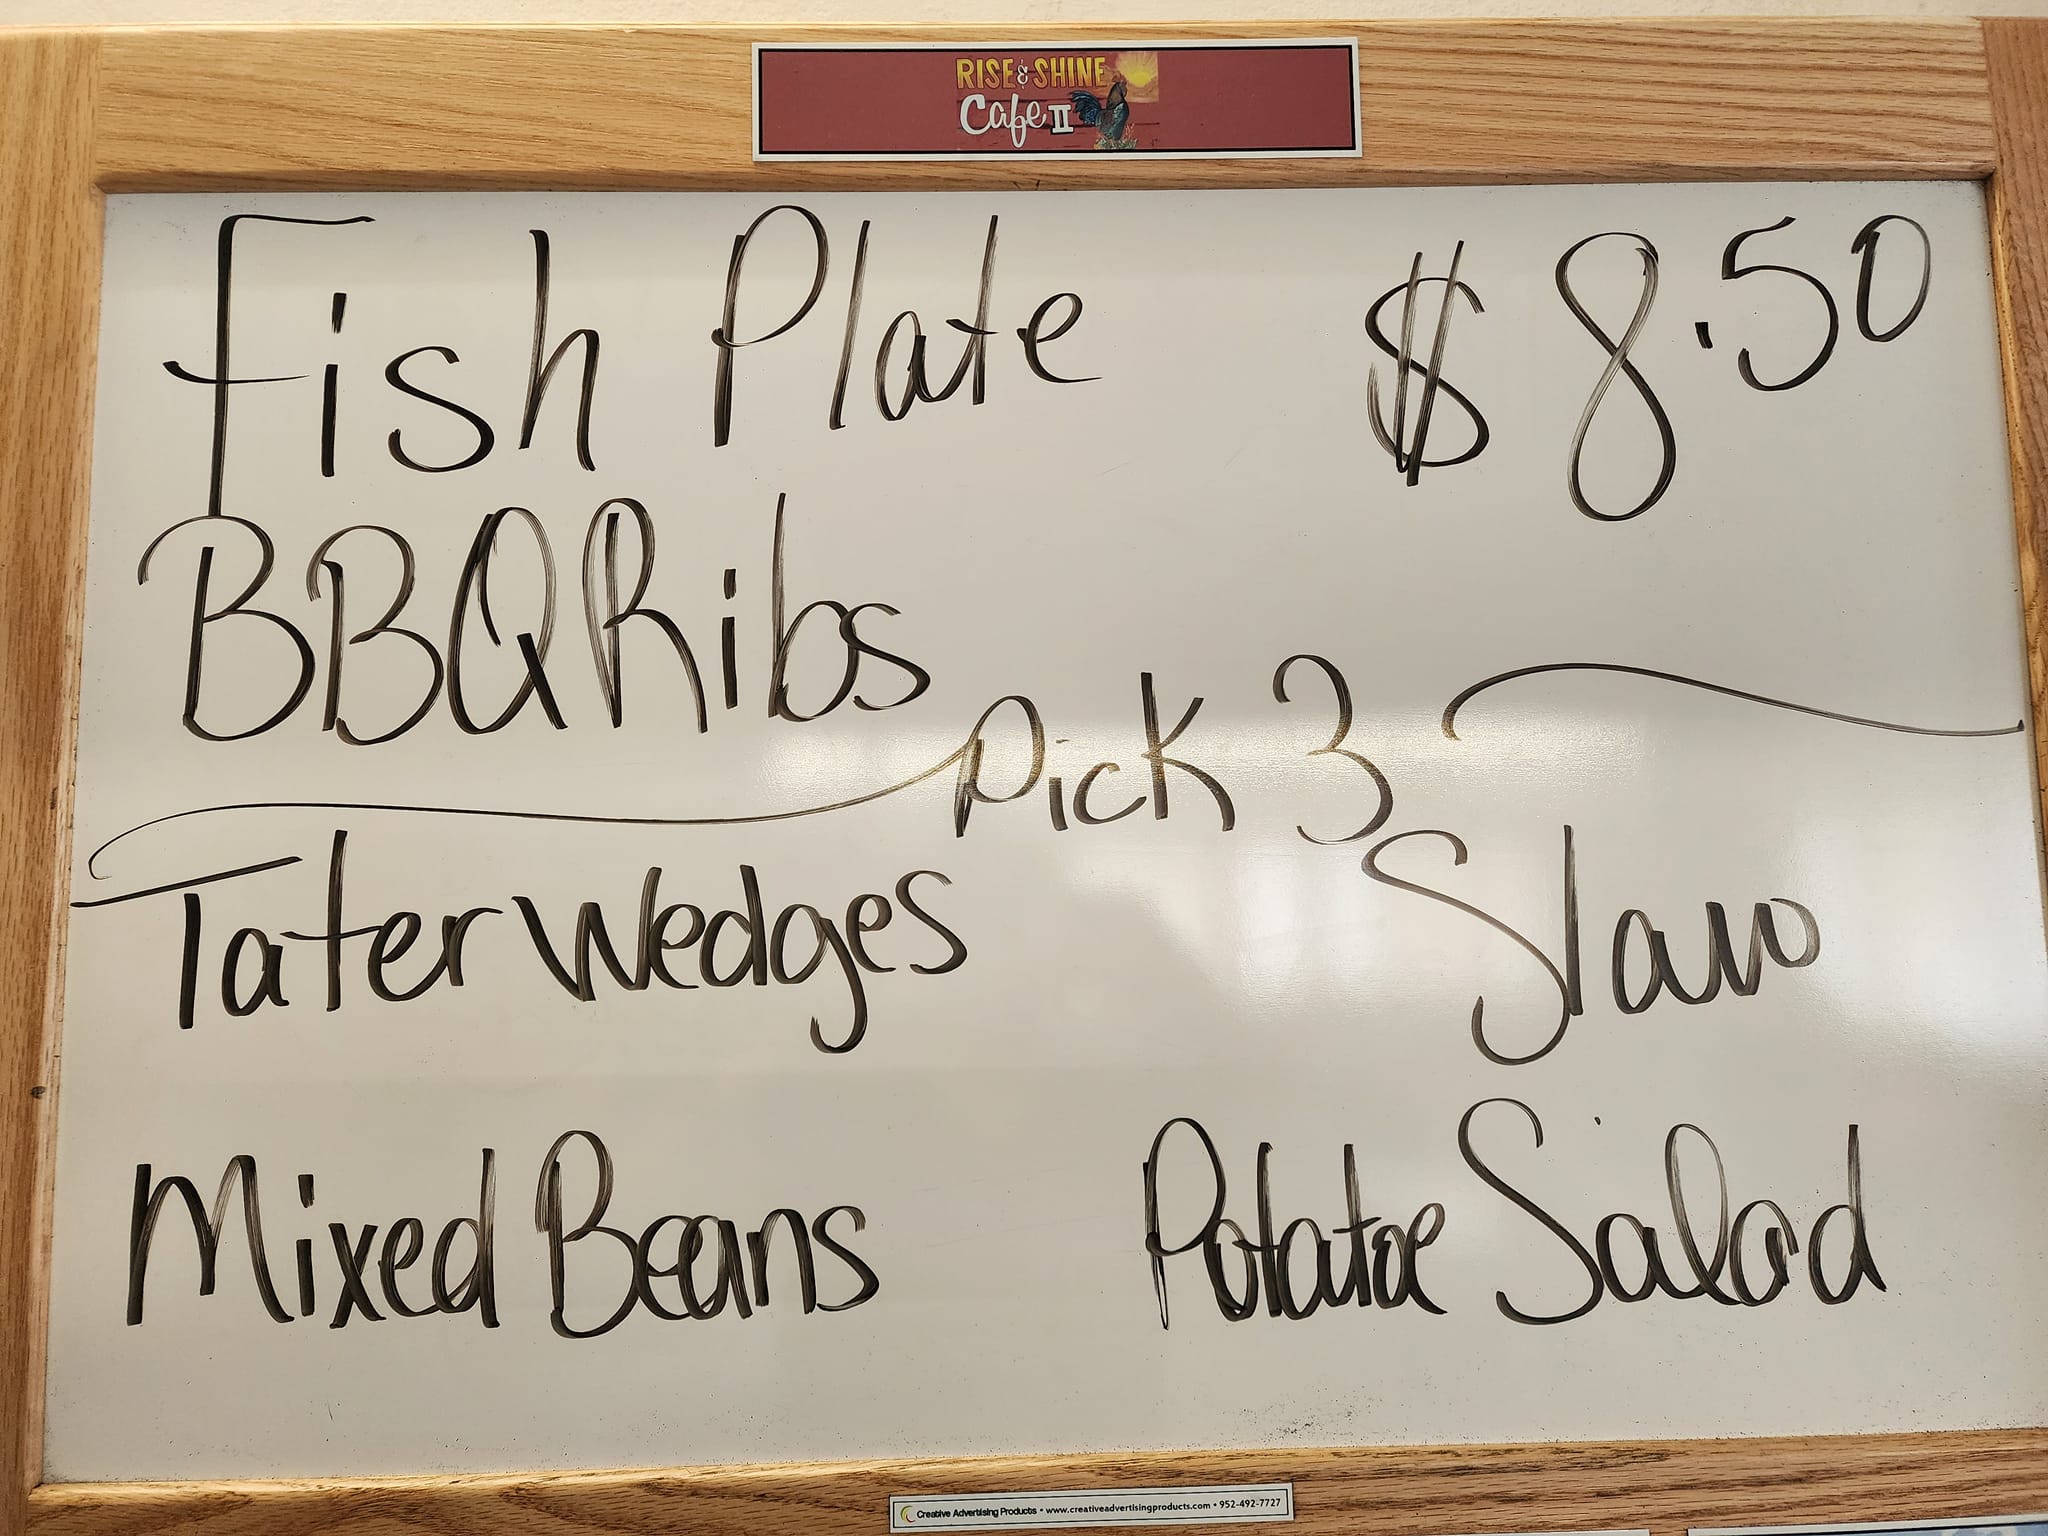 RISE & SHINE
Cafe II
Fish Plate $8.50
BBQ Ribs
Pick 3
Tater Wedges Slaw
Mixed Beans Potatoe Salad
Creative Advertising Products • www.creativeadvertisingproducts.com • 952-492-7727